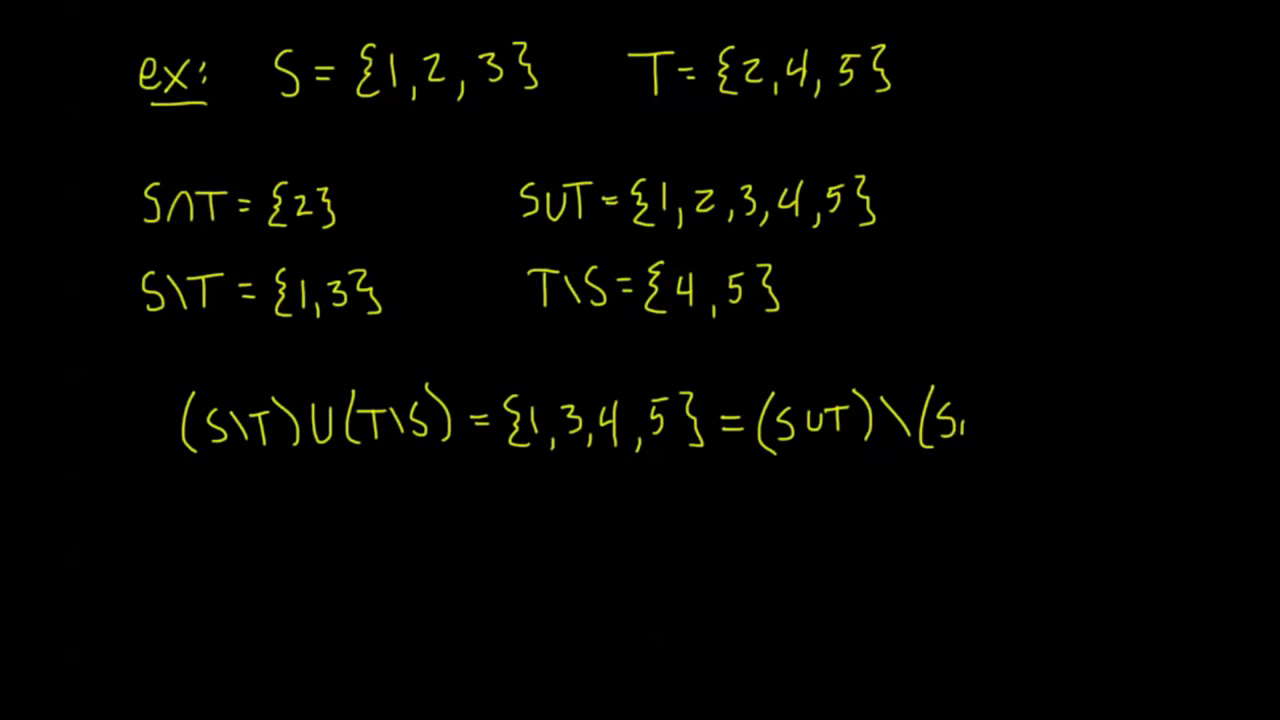 ex: S = {1, 2, 3} T = {2, 4, 5}
S∩T = {2} S∪T = {1, 2, 3, 4, 5}
S\T = {1, 3} T\S = {4, 5}
(S\T)∪(T\S) = {1, 3, 4, 5} = (S∪T)\(S